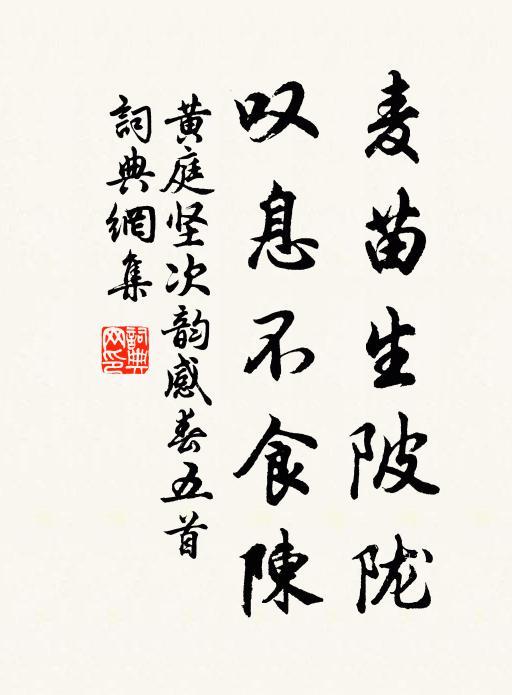 麦苗生陂陇
叹息不食陳
黄庭坚次韵感春五首
詞典網集
詞典網印